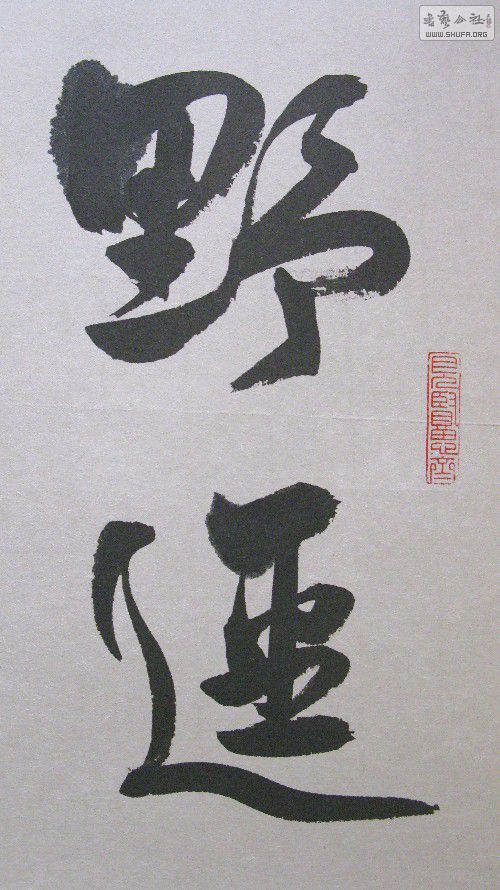 書藝公社
WWW.SHUFA.ORG
野
逕
見賢思齊